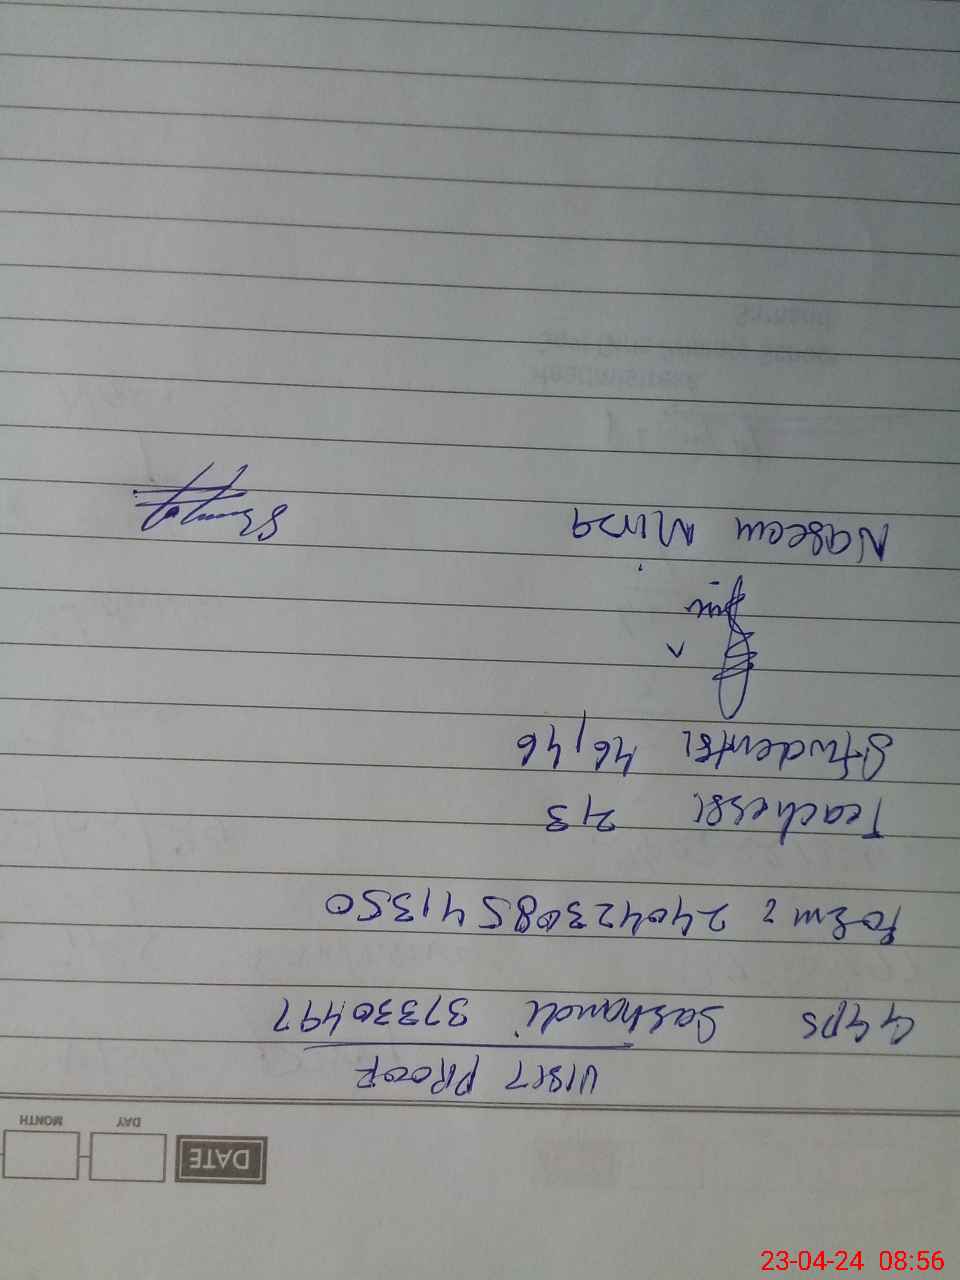 DATE
DAY MONTH
VISIT PROOF
GGPS Sashandi 37330497
Form : 24042308541350
Teachers: 2,3
Students: 46,46
Naseem Mirza
23-04-24 08:56